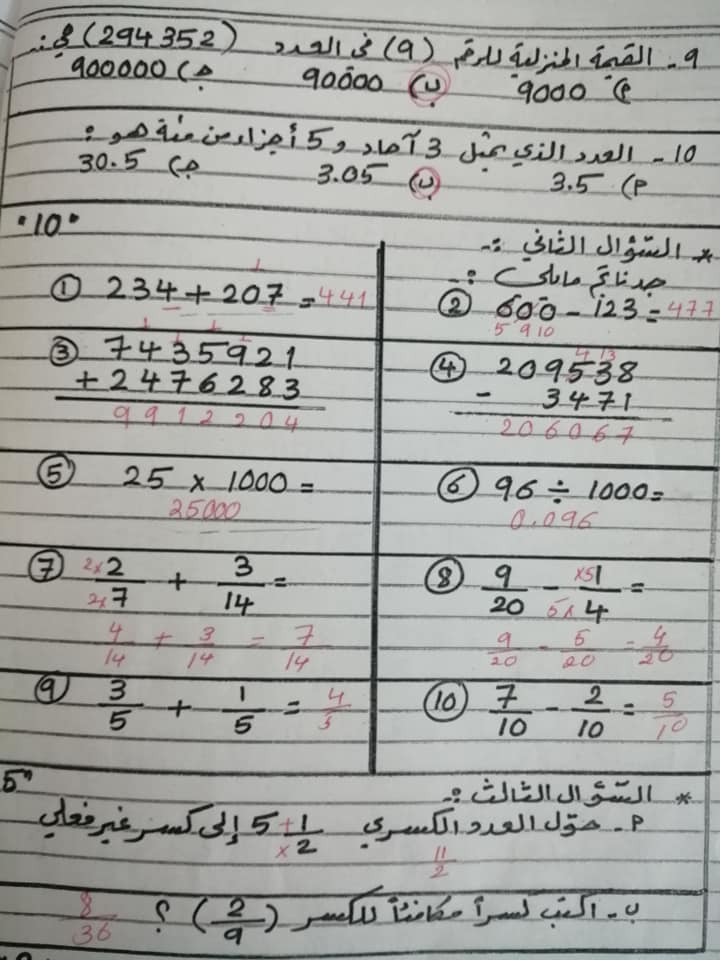 9- القيمة المنزلية للرقم (9) في العدد (294352) هي:
أ) 9000 ب) 90000 ج) 900000
10- العدد الذي يمثل 3 آحاد و 5 أجزاء من مئة هو:
أ) 3.5 ب) 3.05 ج) 30.5
"10"
* السؤال الثاني:-
جد ناتج ما يلي:-
1
① 234 + 207 = 441
② 600 - 123 = 477
5 9 10
1 1 1 1
③ 7435921
+ 2476283
9912204
4 13
④ 209538
- 3471
206067
⑤ 25 × 1000 =
25000
⑥ 96 ÷ 1000 =
0.096
⑦ 2× 2/2× 7 + 3/14 =
4/14 + 3/14 = 7/14
⑧ 9/20 - ×5 1/5× 4 =
9/20 - 5/20 = 4/20
⑨ 3/5 + 1/5 = 4/5
⑩ 7/10 - 2/10 = 5/10
5"
* السؤال الثالث:-
أ- حوّل العدد الكسري 5 + 1/× 2 إلى كسر غير فعلي
11/2
ب- اكتب كسراً مكافئاً للكسر (2/9) ؟ 8/36